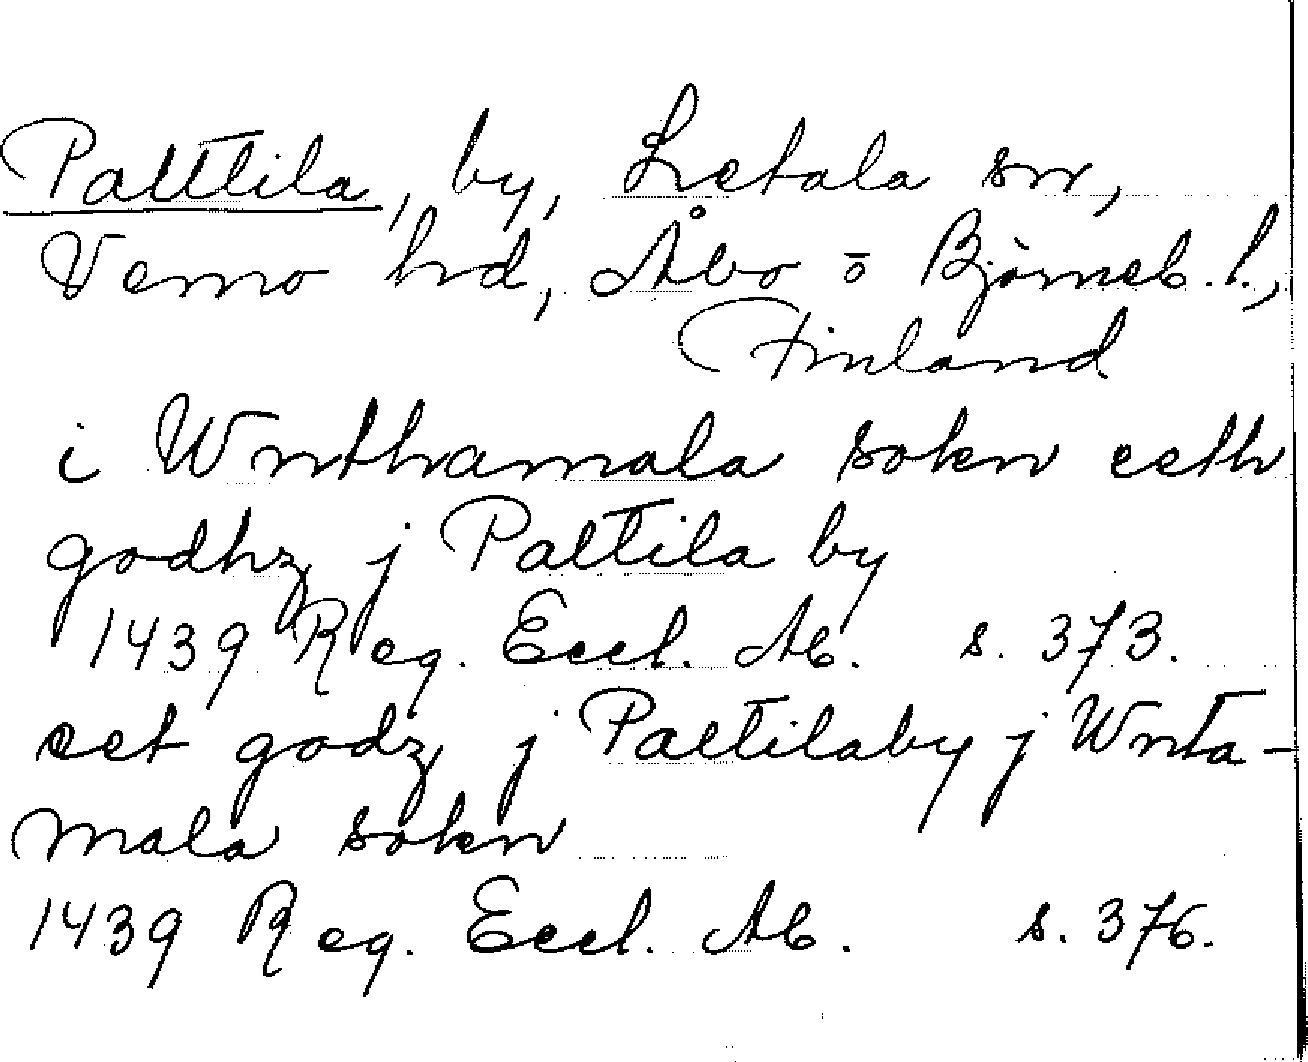 Pattila, by, Letala sn,
Vemo hd, Åbo o Björneb. l.,
Finland
i Wnthamala sokn eeth
godhz j Paltila by
1439 Reg. Eccl. Ab. s. 373.
eet godz j Paltilaby j Wnta-
mala sokn
1439 Reg. Eccl. Ab. s. 376.